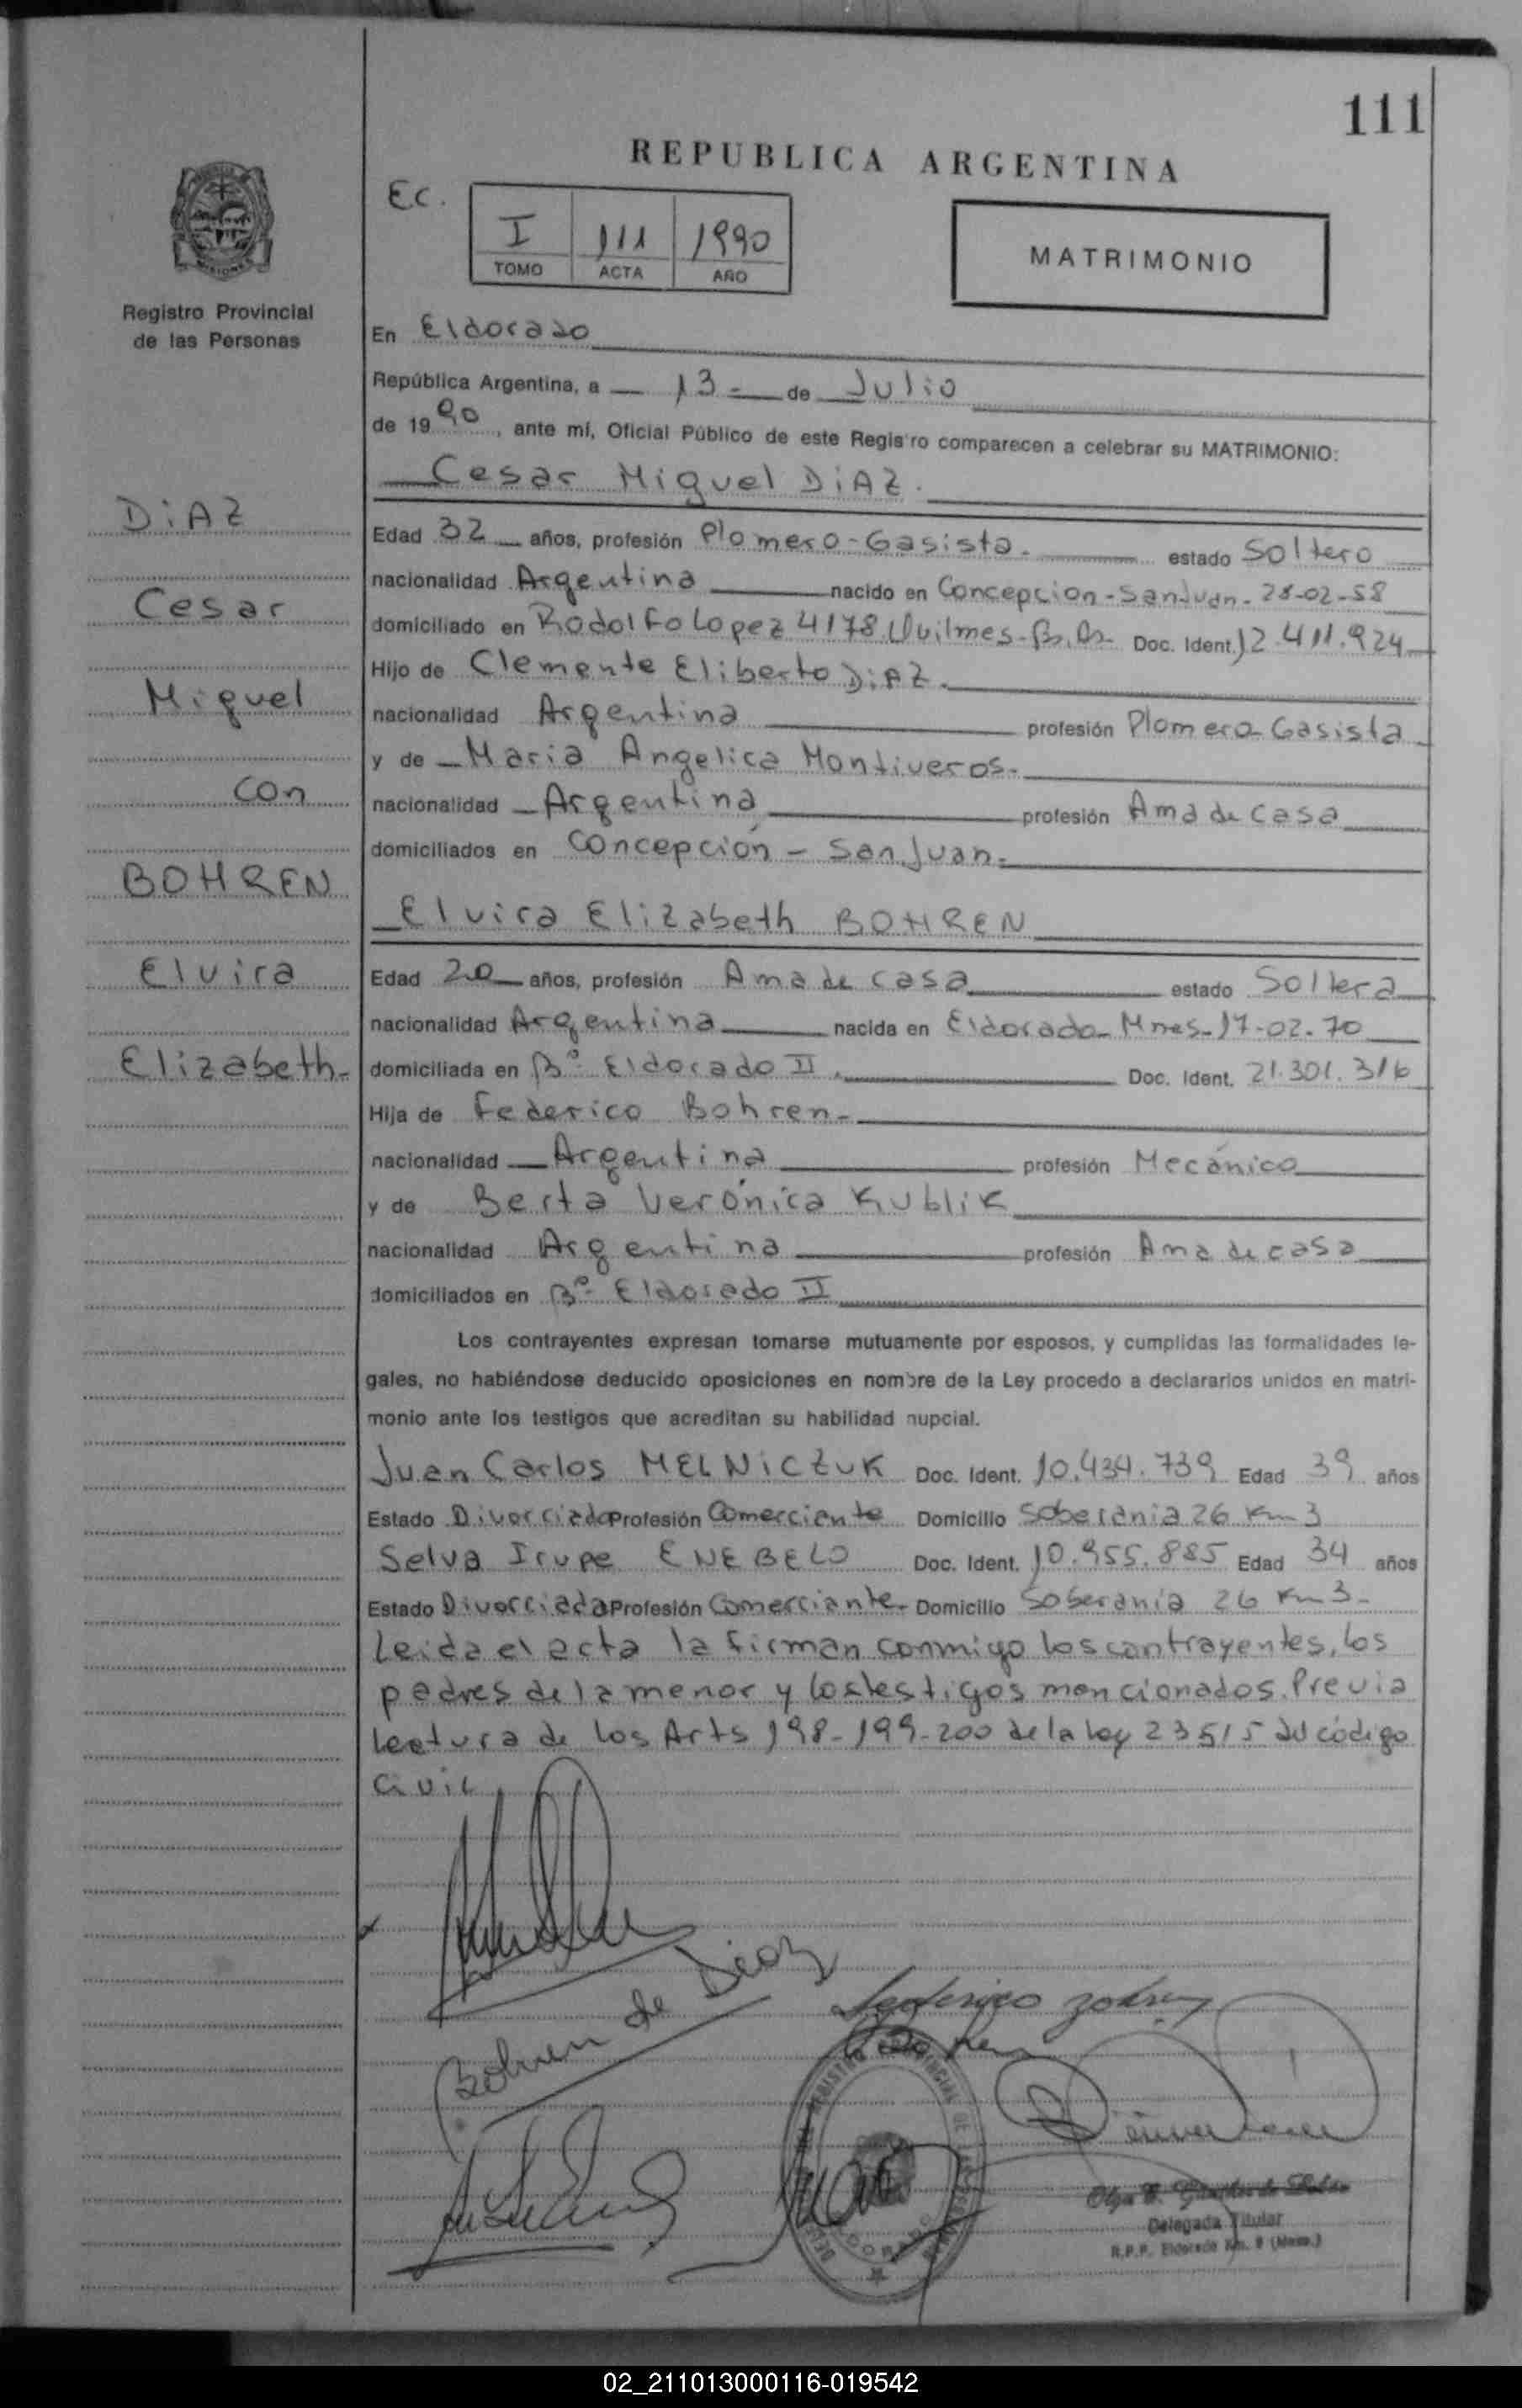 111
REPUBLICA ARGENTINA
Ec.
I 111 1990
TOMO ACTA AÑO
MATRIMONIO
MISIONES
Registro Provincial
de las Personas
En Eldorado
República Argentina, a 13 - de Julio
de 1990, ante mí, Oficial Público de este Registro comparecen a celebrar su MATRIMONIO:
Cesar Miguel DiAZ.
Edad 32 años, profesión Plomero-Gasista. estado Soltero
nacionalidad Argentina nacido en Concepcion-San Juan. 28-02-58
domiciliado en Rodolfo Lopez 4178 Quilmes-Bs.As. Doc. Ident. 12.411.924
Hijo de Clemente Eliberto DiAZ.
nacionalidad Argentina profesión Plomero-Gasista
y de Maria Angelica Montiveros.
nacionalidad Argentina profesión Ama de casa
domiciliados en Concepción - San Juan.
Elvira Elizabeth BOHREN
Edad 20 años, profesión Ama de casa estado Soltera
nacionalidad Argentina nacida en Eldorado-Mnes-17-02-70
domiciliada en Bº Eldorado II. Doc. Ident. 21.301.316
Hija de Federico Bohren-
nacionalidad Argentina profesión Mecánico
y de Berta Verónica Kublik
nacionalidad Argentina profesión Ama de casa
domiciliados en Bº Eldorado II
DiAZ
Cesar
Miguel
con
BOHREN
Elvira
Elizabeth-
Los contrayentes expresan tomarse mutuamente por esposos, y cumplidas las formalidades le-
gales, no habiéndose deducido oposiciones en nombre de la Ley procedo a declararlos unidos en matri-
monio ante los testigos que acreditan su habilidad nupcial.
Juan Carlos MELNiCZUK Doc. Ident. 10.434.739 Edad 39 años
Estado Divorciado Profesión Comerciante Domicilio Soberania 26 Km 3
Selva Irupe ENEBELO Doc. Ident. 10.955.885 Edad 34 años
Estado Divorciada Profesión Comerciante- Domicilio Soberanía 26 Km 3-
Leida el acta la firman conmigo los contrayentes, los
padres de la menor y los testigos mencionados. Previa
lectura de los Arts 198-199-200 de la ley 23515 del código
civil
Bohren de Diaz
Federico
Delegada Titular
R.P.P. Eldorado Km. 9 (Mnes.)
02_211013000116-019542